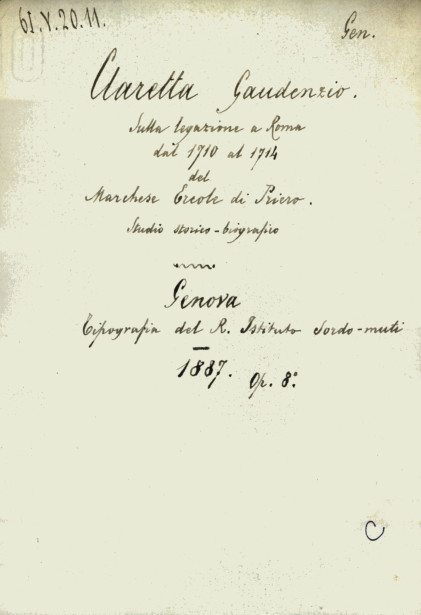 61.V.20.11.
Gen.
Claretta Gaudenzio.
Sulla legazione a Roma
dal 1710 al 1714
del
Marchese Ercole di Priero.
Studio storico-biografico
Genova
Tipografia del R. Istituto Sordo-muti
1887. Op. 8°
C